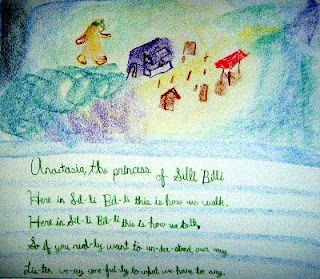 Anastasia, the princess of Silli Billi
Here in Sil-li Bil-li this is how we walk.
Here in Sil-li Bil-li this is how we talk,
So if you real-ly want to un-der-stand our way
Lis-ten ve-ry care-ful-ly to what we have to say.